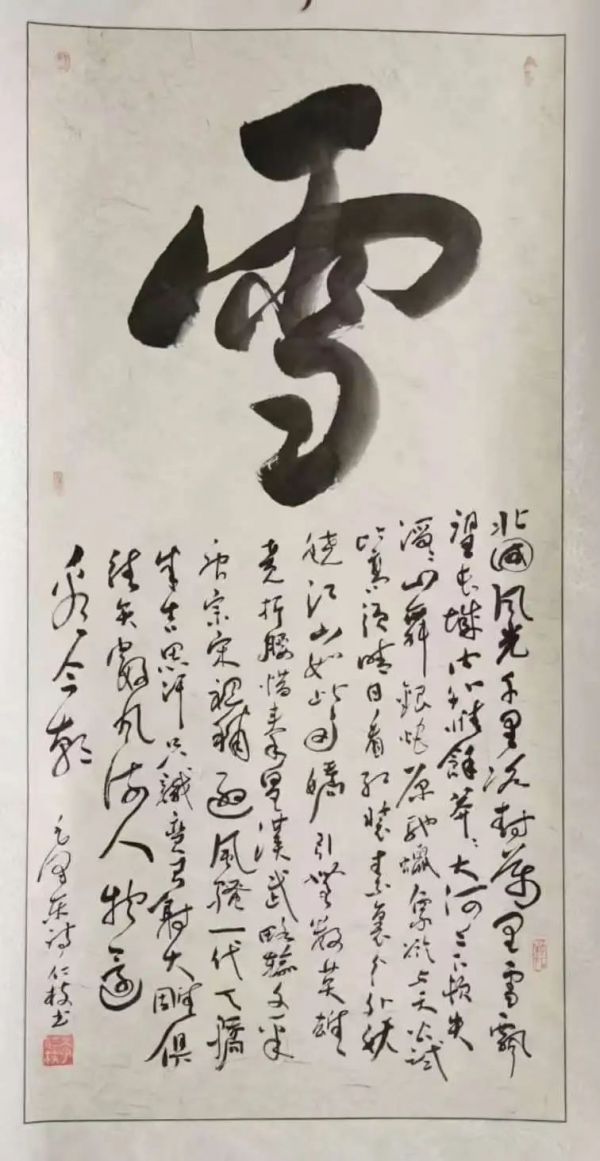 雪
北國风光千里冰封萬里雪飄
望长城内外惟餘莽々大河上下頓失
滔々山舞銀蛇原馳蠟象欲与天公試
比高須晴日看红装素裹分外妖
娆江山如此多嬌引無数英雄
竞折腰惜秦皇漢武略輸文采
唐宗宋祖稍逊風騷一代天驕
成吉思汗只識彎弓射大雕俱
往矣數风流人物還
看今朝
毛泽东诗仁枝书